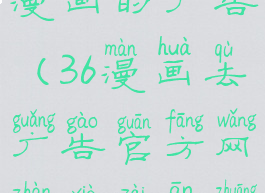 漫画的广告
màn huà qù
(36漫画去
guǎng gào guān fāng wǎng
广告官方网
zhàn xià zài ān zhuāng